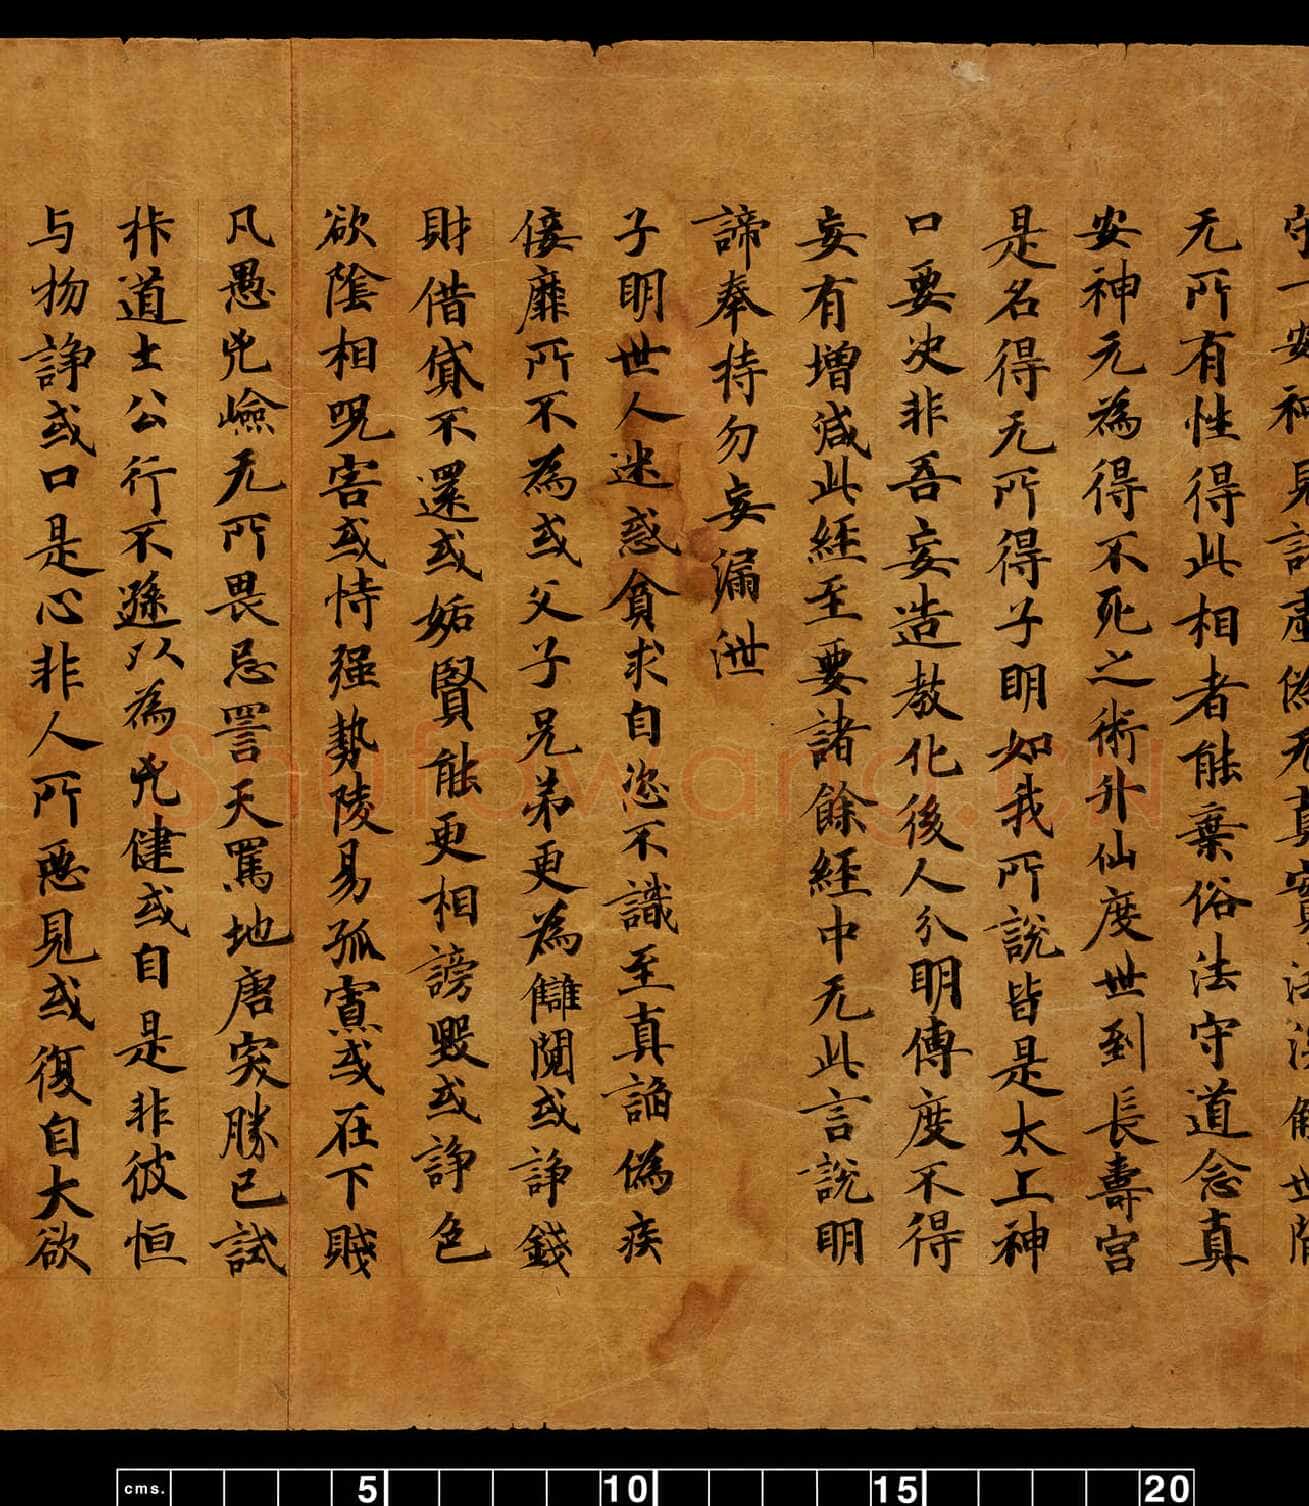 守一安神見諸虛偽无真實法深解世間
无所有性得此相者能棄俗法守道念真
安神无為得不死之術升仙度世到長壽宮
是名得无所得子明如我所說皆是太上神
口要决非吾妄造教化後人分明傳度不得
妄有增減此經至要諸餘經中无此言說明
諦奉持勿妄漏泄
子明世人迷惑貪求自恣不識至真諂偽疾
佞靡所不為或父子兄弟更為讎鬩或諍錢
財借貸不還或妬賢能更相謗毀或諍色
欲陰相咒害或恃强勢陵易孤寡或在下賤
凡愚兇嶮无所畏忌詈天罵地唐突勝己試
拃道士公行不遜以為兇健或自是非彼恒
与物諍或口是心非人所惡見或復自大欲
Shufawang.cn
cms. 5 10 15 20